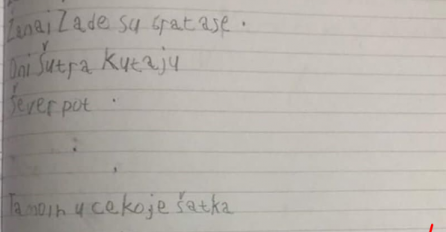 Zanaj Zade su spatase.
Oni šutra kutaju
Šever pot
Tamoin u cekoje šatka